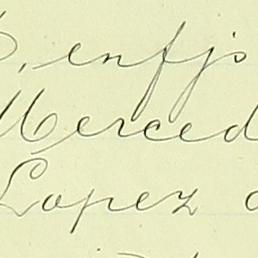 enfjo
Merced
Lopez